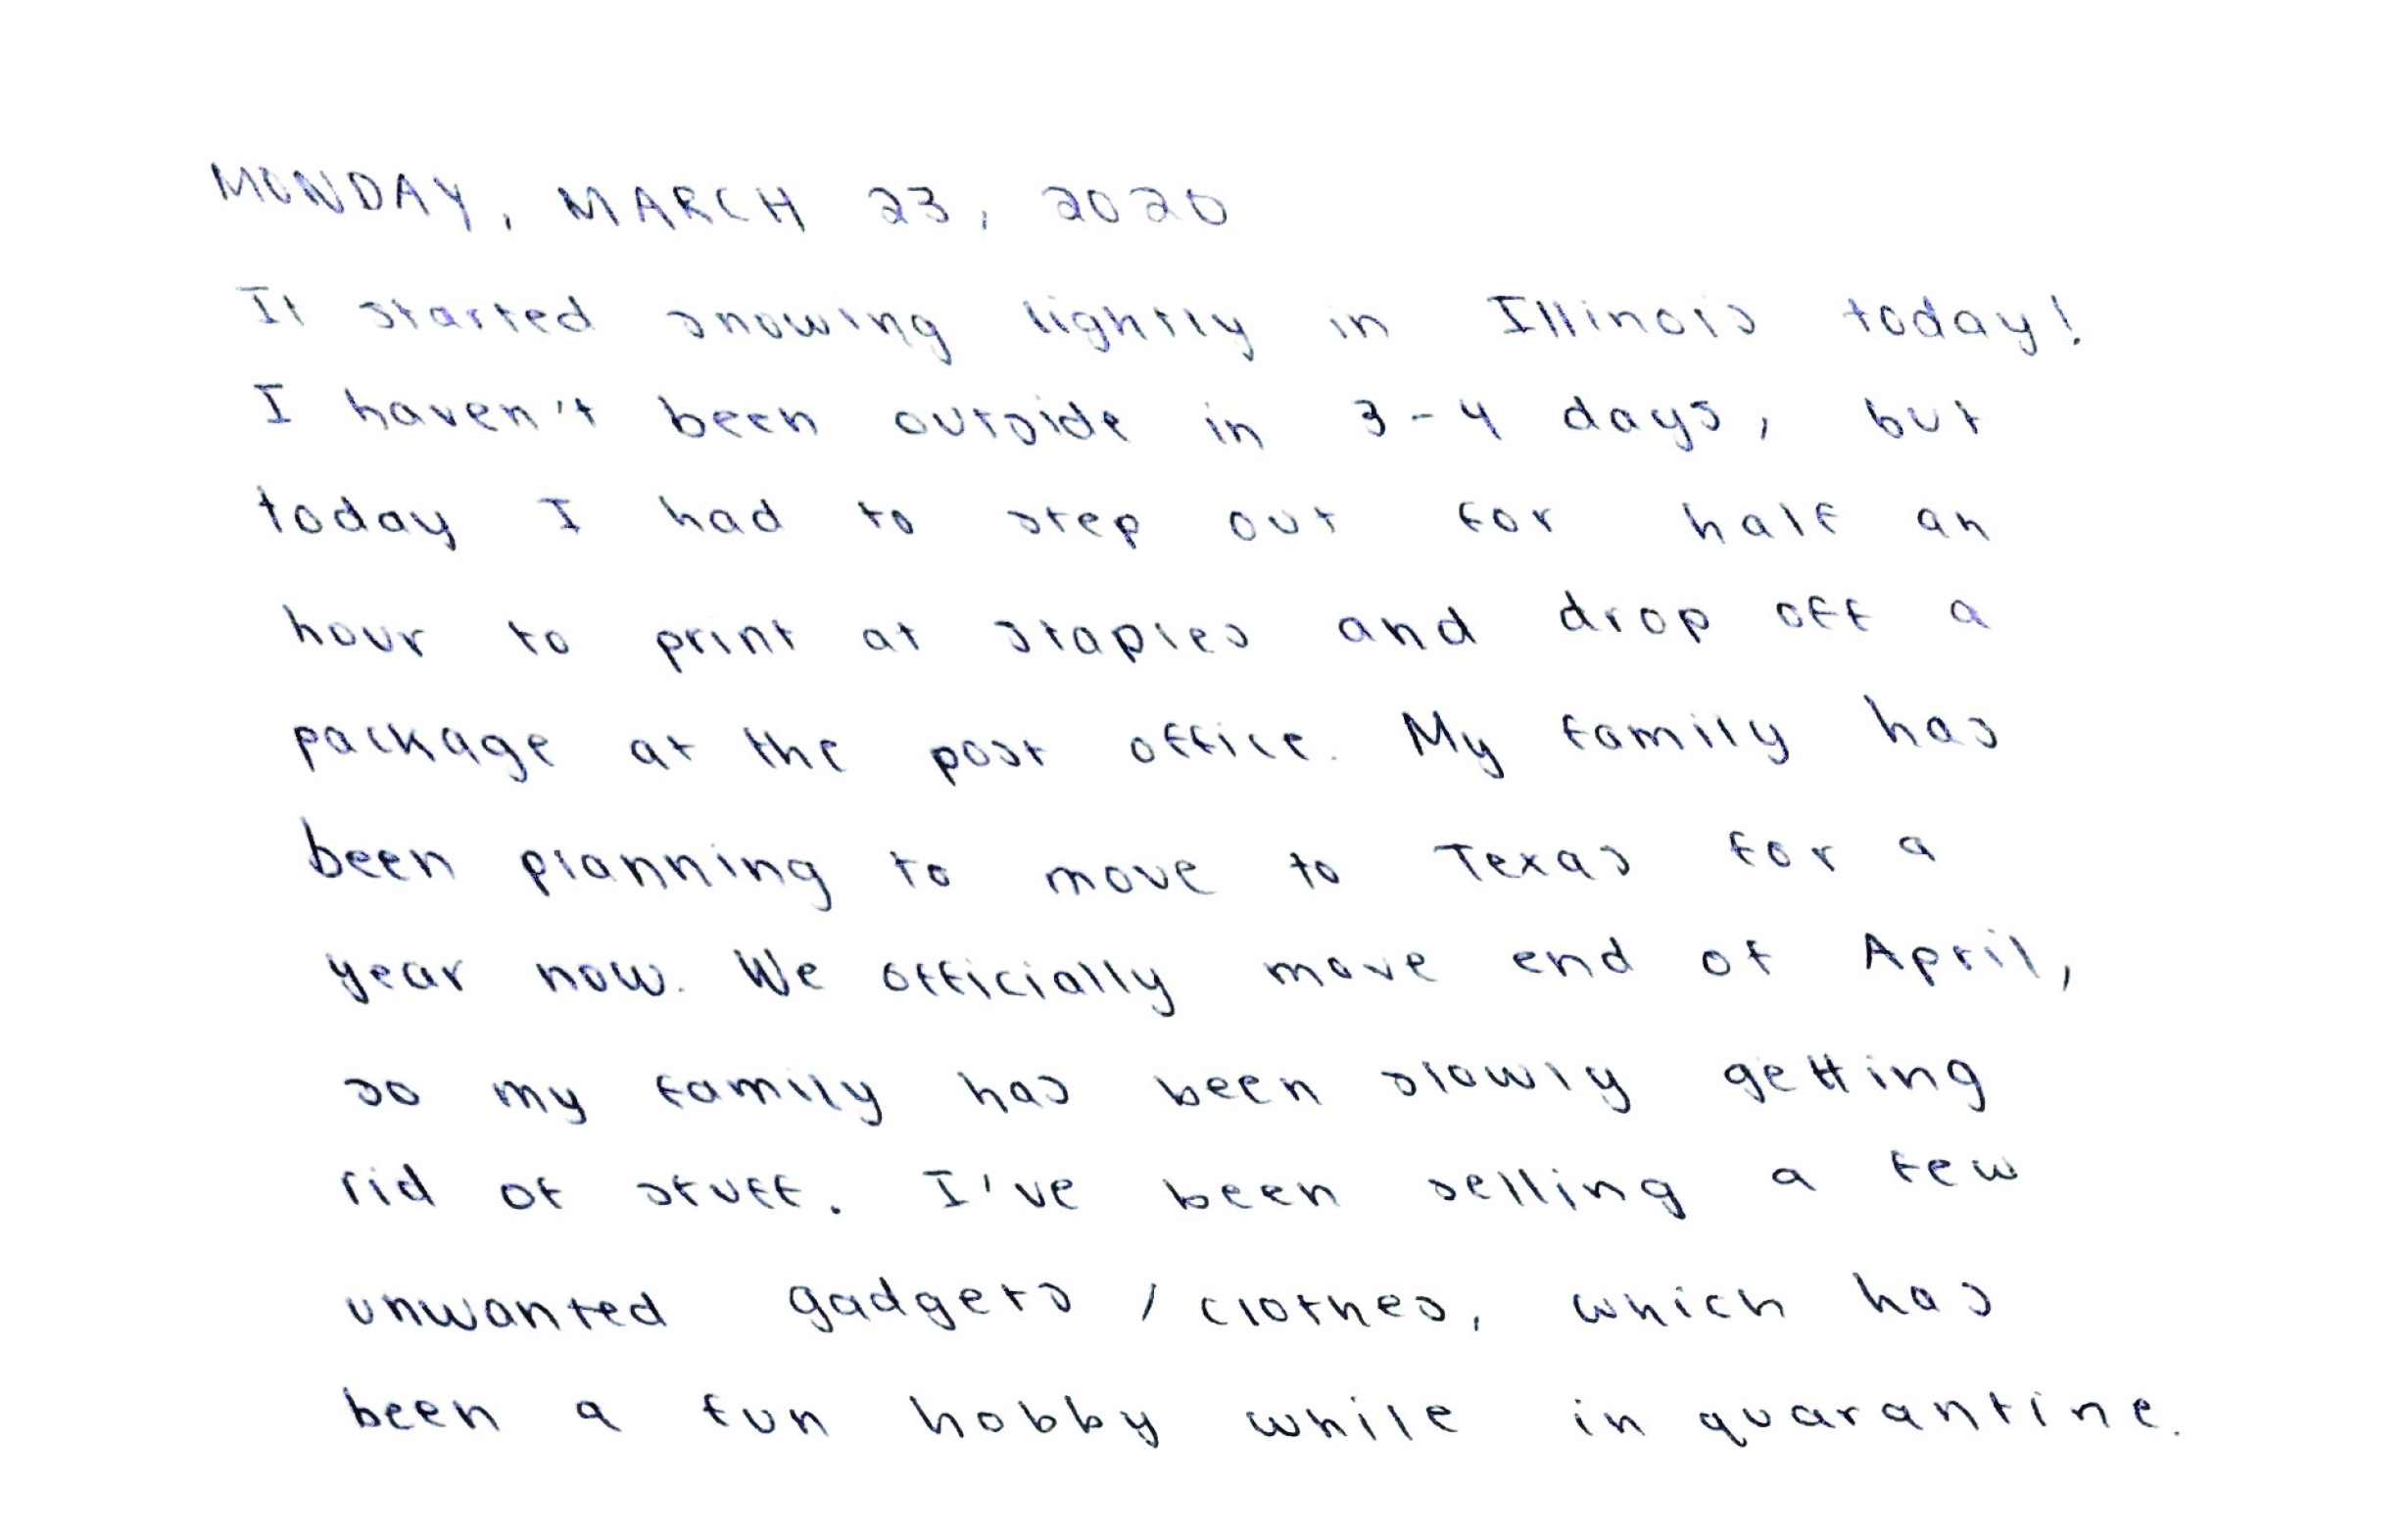 MONDAY, MARCH 23, 2020
It started snowing lightly in Illinois today!
I haven't been outside in 3-4 days, but
today I had to step out for half an
hour to print at staples and drop off a
package at the post office. My family has
been planning to move to Texas for a
year now. We officially move end of April,
so my family has been slowly getting
rid of stuff. I've been selling a few
unwanted gadgets / clothes, which has
been a fun hobby while in quarantine.